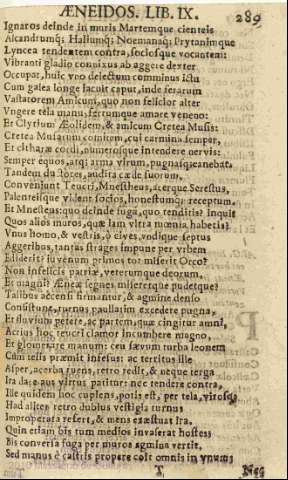 ÆNEIDOS. LIB. IX. 289
Ignaros deinde in muris Martemque cienteis
Alcandrumq́; Haliumq́; Noemanaq́; Prytanimque
Lyncea tendentem contra, sociosque vocantem:
Vibranti gladio connixus ab aggere dexter
Occupat, huic vno delectum comminus ictu
Cum galea longe jacuit caput, inde ferarum
Vastatorem Amicum, quo non felicior alter
Vngere tela manu, ferrumque amare veneno:
Et Clytium Æolidem, & amicum Cretea Musis:
Cretea Musarum comitem, cui carmina semper,
Et citharæ cordi, numerosque intendere nervis:
Semper equos, atq; arma virum, pugnasq; canebat.
Tandem ductores, audita cæde suorum,
Conveniunt Teucri, Mnestheus, acerque Serestus,
Palenteisque vident socios, hostemq́; receptum.
Et Mnesteus: quo deinde fuga, quo tenditis? Inquit
Quos alios muros, quæ iam vltra mœnia habetis?
Vnus homo, & vestris, ò cives, vndique septus
Aggeribus, tantas strages impune per vrbem
Ediderit? juvenum primos tot miserit Orco?
Non infelicis patriæ, veterumque deorum,
Et magni Æneæ segnes misereterque pudetque?
Talibus accensi firmantur, & agmine denso
Consistunt, turnus paullatim excedere pugna,
Et fluvium petere, ac partem, quæ cingitur amni,
Acrius hoc teucri clamor incumbere magno,
Et glomerare manum: ceu sævum turba leonem
Cum telis præmit infesus: ac territus ille
Asper, acerba tuens, retro redit, & neque terga
Ira dare aus virtus patitur: nec tendere contra,
Ille quidem hoc cupiens, potis est, per tela, virosq́;
Had aliter retro dubius vestigia turnus
Improperata refert, & mens exæstuat ira.
Quin etiam bis tum medios invaserat hostes:
Bis conversa fuga per muros agmina vertit.
Sed manus è castris propere coit omnis in vnum:
T